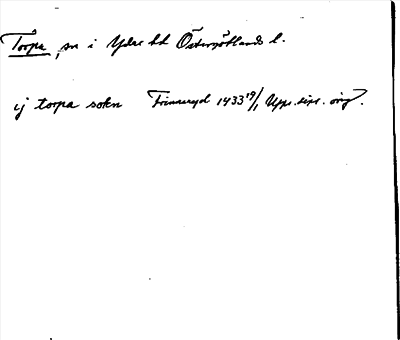 Torpa, sn i Ydre hd Östergötlands l.
ij torpa sokn Finneryd 1433 19/1 Ups. dipl. orig.